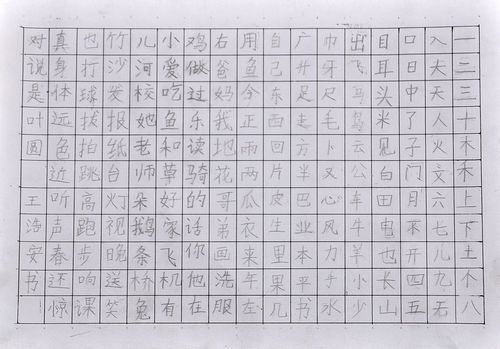 一二三十木禾上下土个八
入大天人火文六七儿九无
口日中了子门月不开四五
目耳头米见白田电也长山
出飞马鸟云公车牛羊小少
巾牙尺毛卜又心风力手水
广升足走方半巴业本平书
自己东西回片皮生里果几
用鱼今正雨两瓜衣来年左
右爸妈我地花哥弟画洗服
鸡做过乐读骑的话你他在
小爱吃鱼和草好家飞机有
儿河校她老师朵鹅条桥兔
竹沙发报纸台灯视晚送笑
也打球拔拍跳高跑步响课
真身体远色近听声春还惊
对说是叶圆 王浩安书